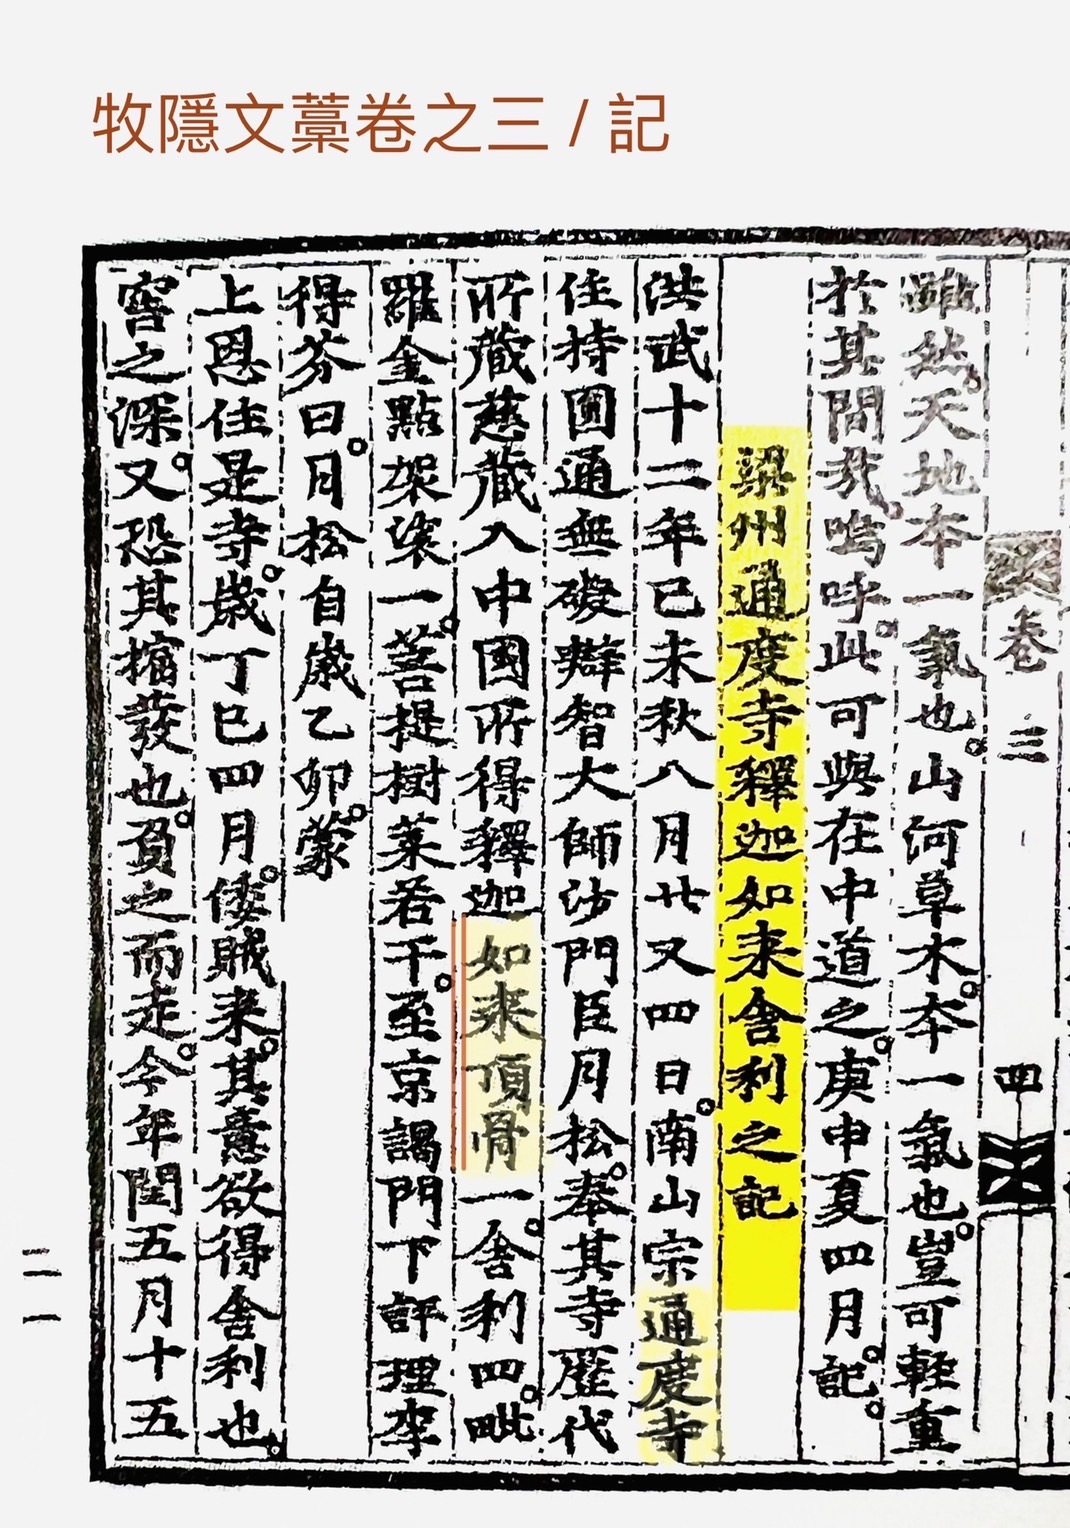 牧隱文藁卷之三 / 記
卷三
四
雖然。天地夲一氣也。山河草木。夲一氣也。豈可輕重
於其間㦲。嗚呼。此可與在中道之。庚申夏四月記。
梁州通度寺釋迦如来舎利之記
洪武十二年己未秋八月廿又四日。南山宗通度寺
住持圓通無礙辯智大師沙門臣月松。奉其寺歷代
所藏慈藏入中國所得釋迦如来頂骨一。舎利四。毗
羅金點袈裟一。菩提樹葉若干。至京謁門下評理李
得芬曰。月松自歲乙卯。蒙
上恩住是寺。歲丁巳四月。倭賊来。其意欲得舎利也。
窖之深。又恐其搰發也。負之而走。今年閏五月十五
二一